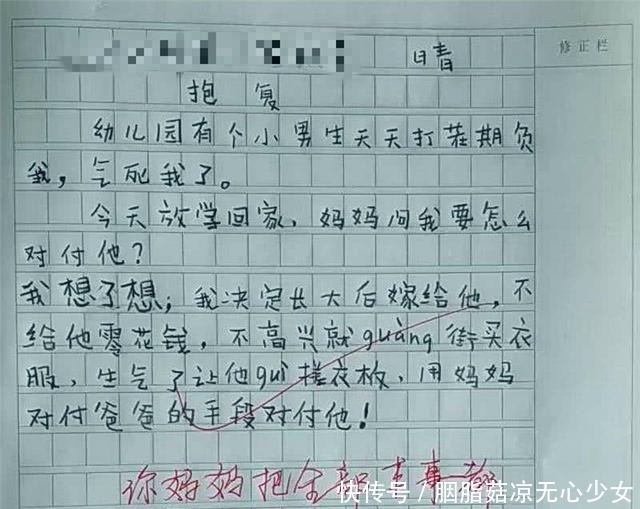 晴
修正栏
抱复
幼儿园有个小男生天天打茬期负
我，气死我了。
今天放学回家，妈妈问我要怎么
对付他？
我想了想，我决定长大后嫁给他，不
给他零花钱，不高兴就guàng街买衣
服，生气了让他guì搓衣板，用妈妈
对付爸爸的手段对付他！
你妈妈把全部
快传号/胭脂菇凉无心少女